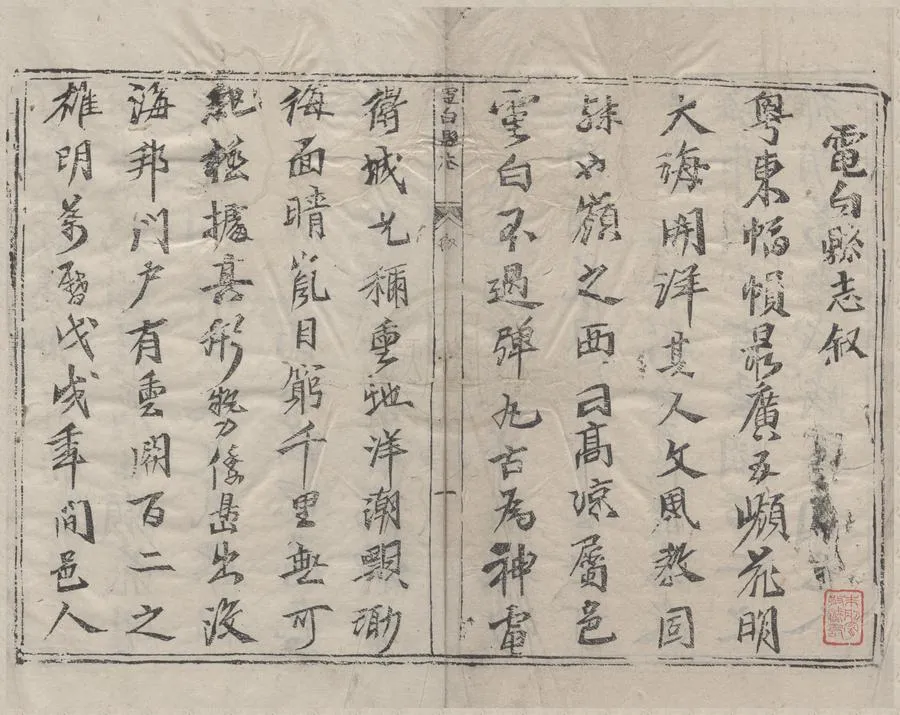 電白縣志叙
粤東幅幀最廣五嶺花明
大海開洋其人文風教固
殊也嶺之西曰高凉屬邑
電白不過弹丸古為神電
電白縣志
叙
一
衛城尤稱重地洋潮飄渤
海面晴嵐目窮千里無可
紀極據其形勢乃倭島出没
海邦門户有雲關百二之
雄明萬曆戊戌年間邑人